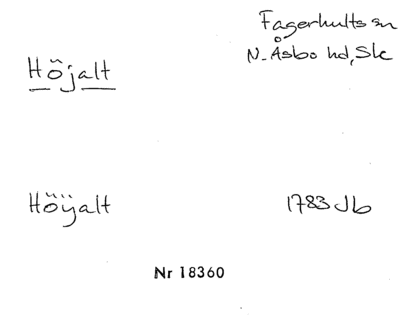 Fagerhults sn
N. Åsbo hd, Sk
Höjalt
Höÿalt 1783 Jb
Nr 18360